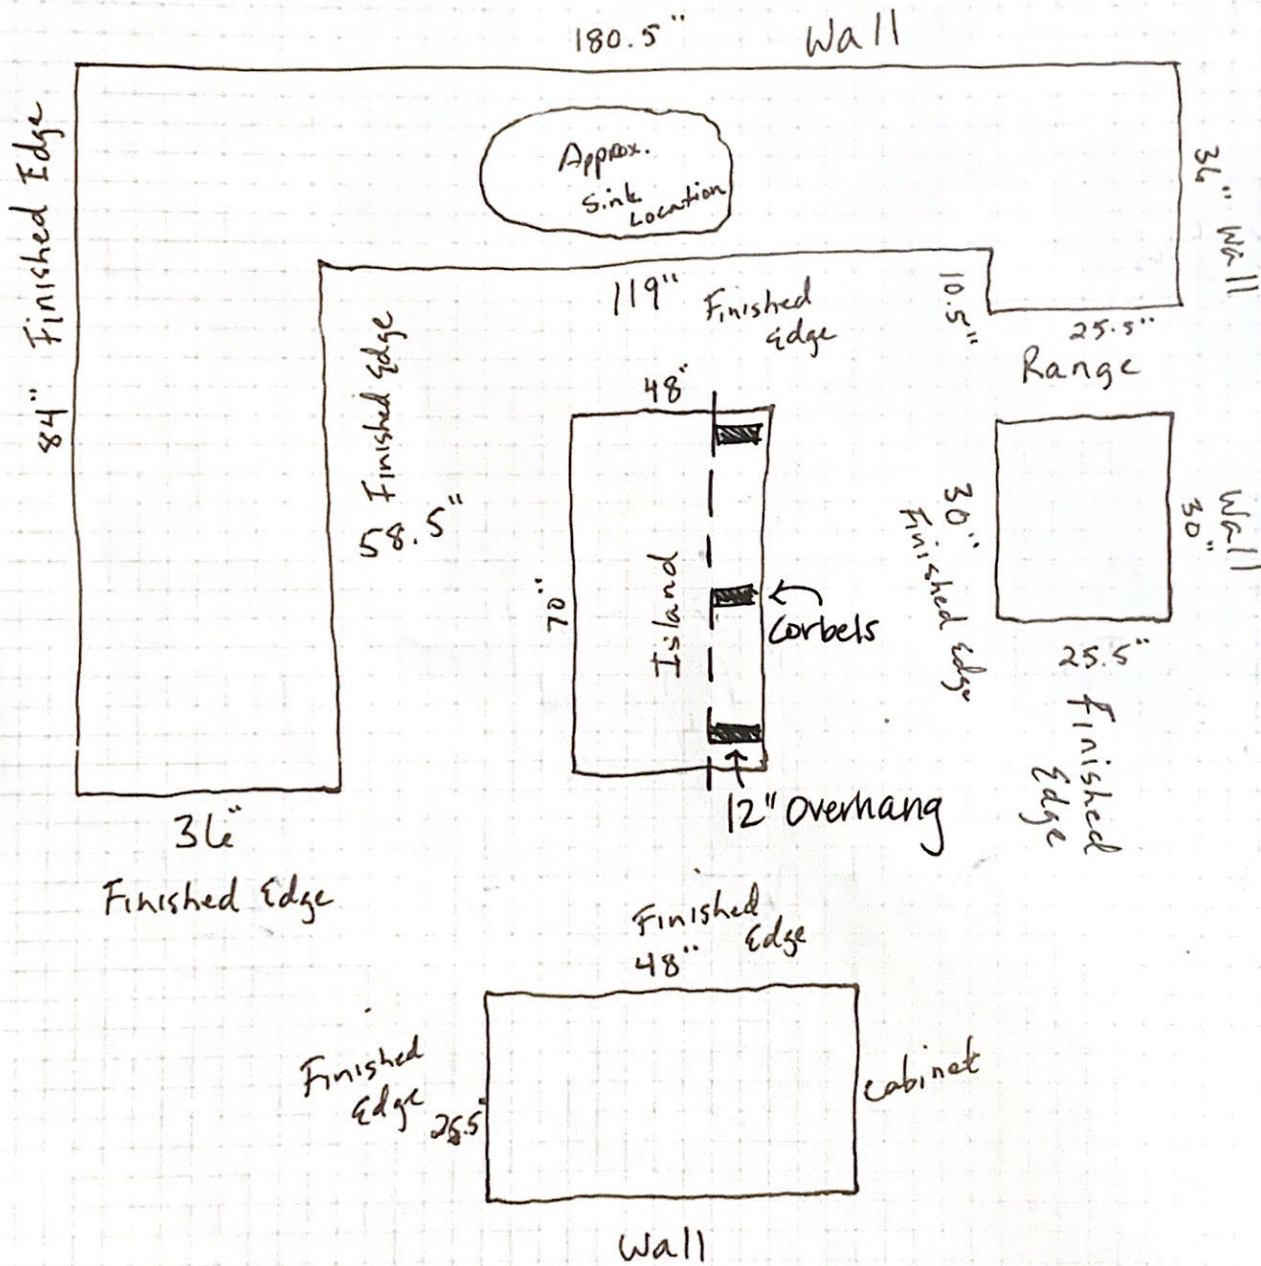 180.5" Wall
84" Finished Edge
Approx.
Sink
Location
36" Wall
119"
Finished
Edge
10.5"
25.5"
Range
58.5"
Finished Edge
48"
70"
Island
Corbels
12" Overhang
30"
Finished Edge
Wall
30"
25.5"
Finished
Edge
36"
Finished Edge
Finished
Edge
48"
Finished
Edge
25.5"
Cabinet
Wall